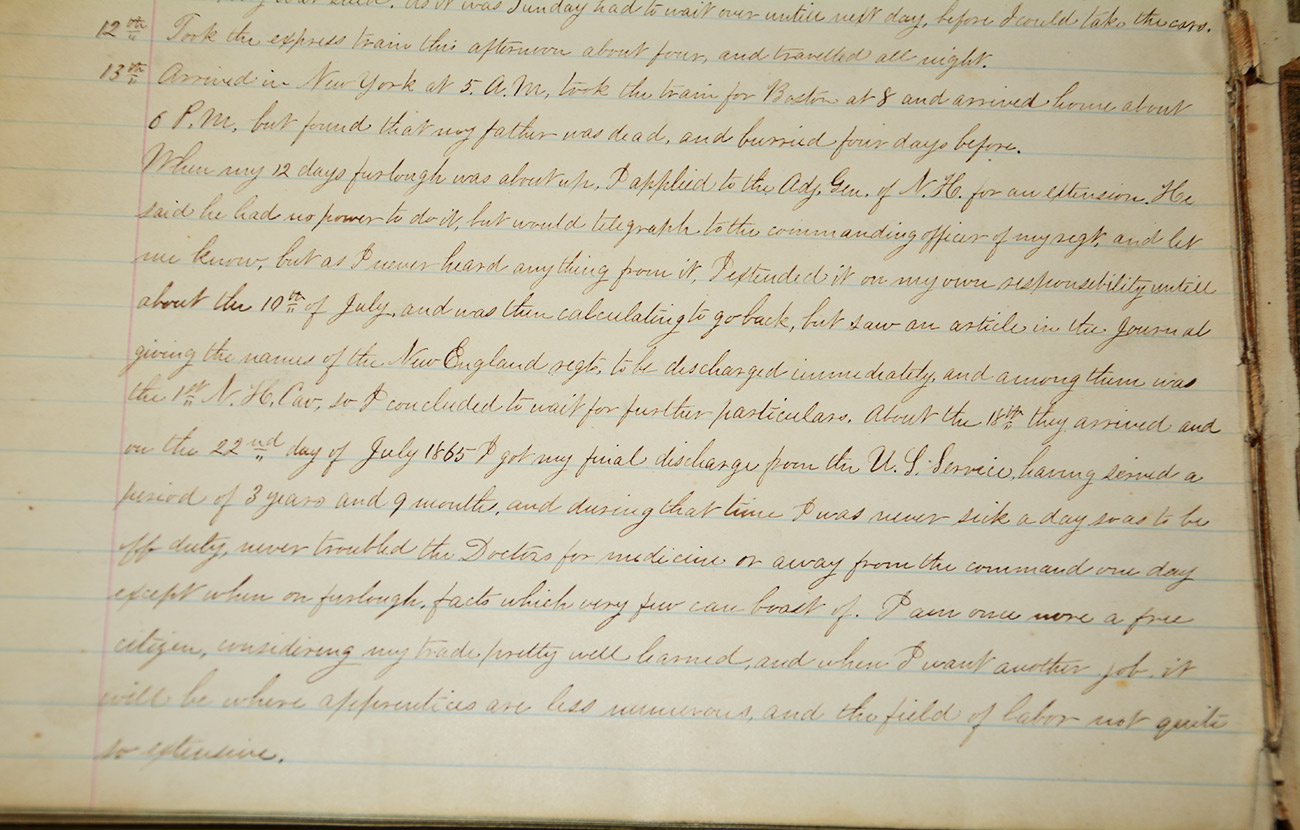 said. As it was Sunday had to wait over untill next day, before I could take the cars.
12th Took the express train this afternoon about four, and travelled all night.
13th Arrived in New York at 5. A.M, took the train for Boston at 8 and arrived home about
6 P.M, but found that my father was dead, and burried four days before.
When my 12 days furlough was about up, I applied to the Adj. Gen. of N.H. for an extension. He
said he had no power to do it, but would telegraph to the commanding officer of my regt. and let
me know, but as I never heard anything from it, I extended it on my own responsibility untill
about the 10th of July, and was then calculating to go back, but saw an article in the Journal
giving the names of the New England regts. to be discharged immediately, and among them was
the 1st N. H. Cav, so I concluded to wait for further particulars. About the 18th they arrived and
on the 22nd day of July 1865 I got my final discharge from the U. S. Service, having served a
period of 3 years and 9 months, and during that time I was never sick a day so as to be
off duty, never troubled the Doctors for medicine or away from the command one day
except when on furlough, facts which very few can boast of. I am once more a free
citizen, considering my trade pretty well learned, and when I want another job, it
will be where apprentices are less numerous, and the field of labor not quite
so extensive.